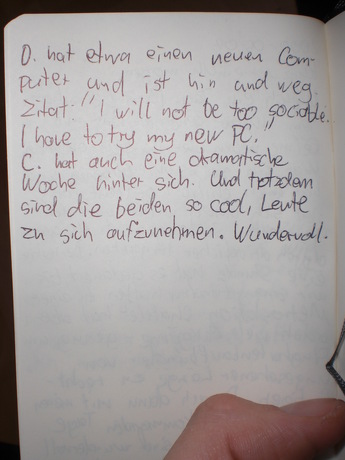 D. hat etwa einen neuen Com-
puter und ist hin und weg.
Zitat: "I will not be too sociable.
I have to try my new PC."
C. hat auch eine dramatische
Woche hinter sich. Und trotzdem
sind die beiden so cool, Leute
zu sich aufzunehmen. Wundervoll.